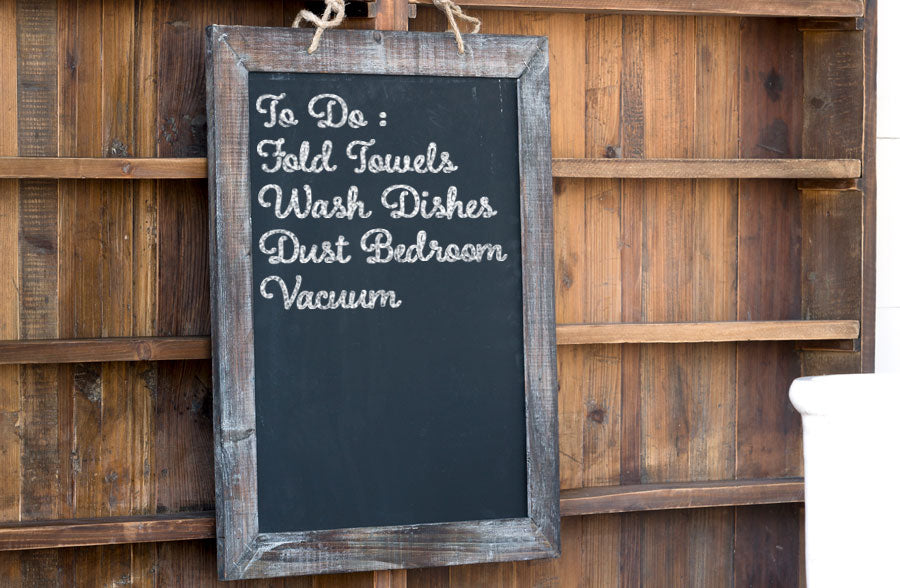 To Do :
Fold Towels
Wash Dishes
Dust Bedroom
Vacuum